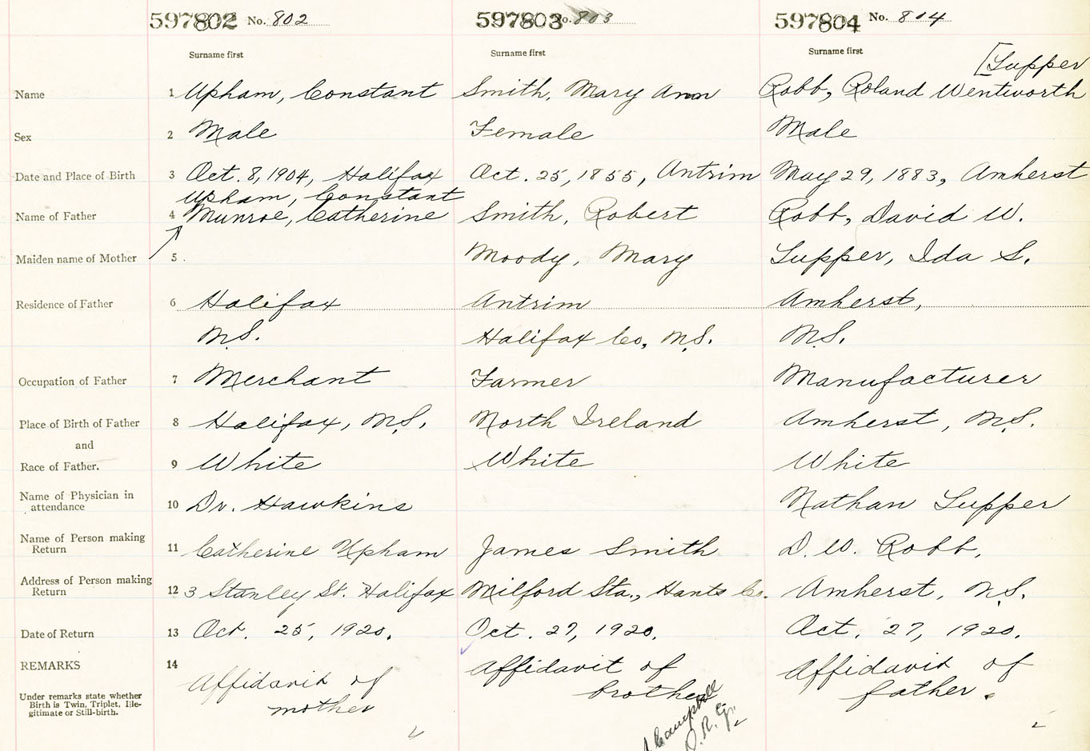 597802 No. 802 597803 No. 803 597804 No. 804
Surname first Surname first Surname first
[Tupper
Name 1 Upham, Constant Smith, Mary Ann Robb, Roland Wentworth
Sex 2 Male Female Male
Date and Place of Birth 3 Oct. 8, 1904, Halifax Oct. 25, 1855, Antrim May 29, 1883, Amherst
Upham, Constant
Name of Father 4 Munroe, Catherine Smith, Robert Robb, David W.
Maiden name of Mother 5 Moody, Mary Tupper, Ida S.
Residence of Father 6 Halifax Antrim Amherst,
N.S. Halifax Co, N.S. N.S.
Occupation of Father 7 Merchant Farmer Manufacturer
Place of Birth of Father 8 Halifax, N.S. North Ireland Amherst, N.S.
and
Race of Father. 9 White White White
Name of Physician in
attendance 10 Dr. Hawkins Nathan Tupper
Name of Person making
Return 11 Catherine Upham James Smith D. W. Robb,
Address of Person making
Return 12 3 Stanley St. Halifax Milford Sta., Hants Co. Amherst, N.S.
Date of Return 13 Oct. 25, 1920. Oct. 27, 1920. Oct. 27, 1920.
REMARKS 14 Affidavit of Affidavit of Affidavit of
mother brother father.
Under remarks state whether
Birth is Twin, Triplet, Ille-
gitimate or Still-birth.
Campbell
D.R.G.